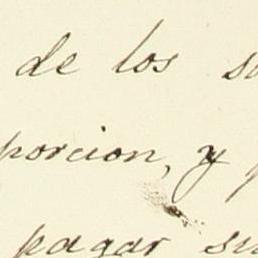 de los
porcion, y
pagar